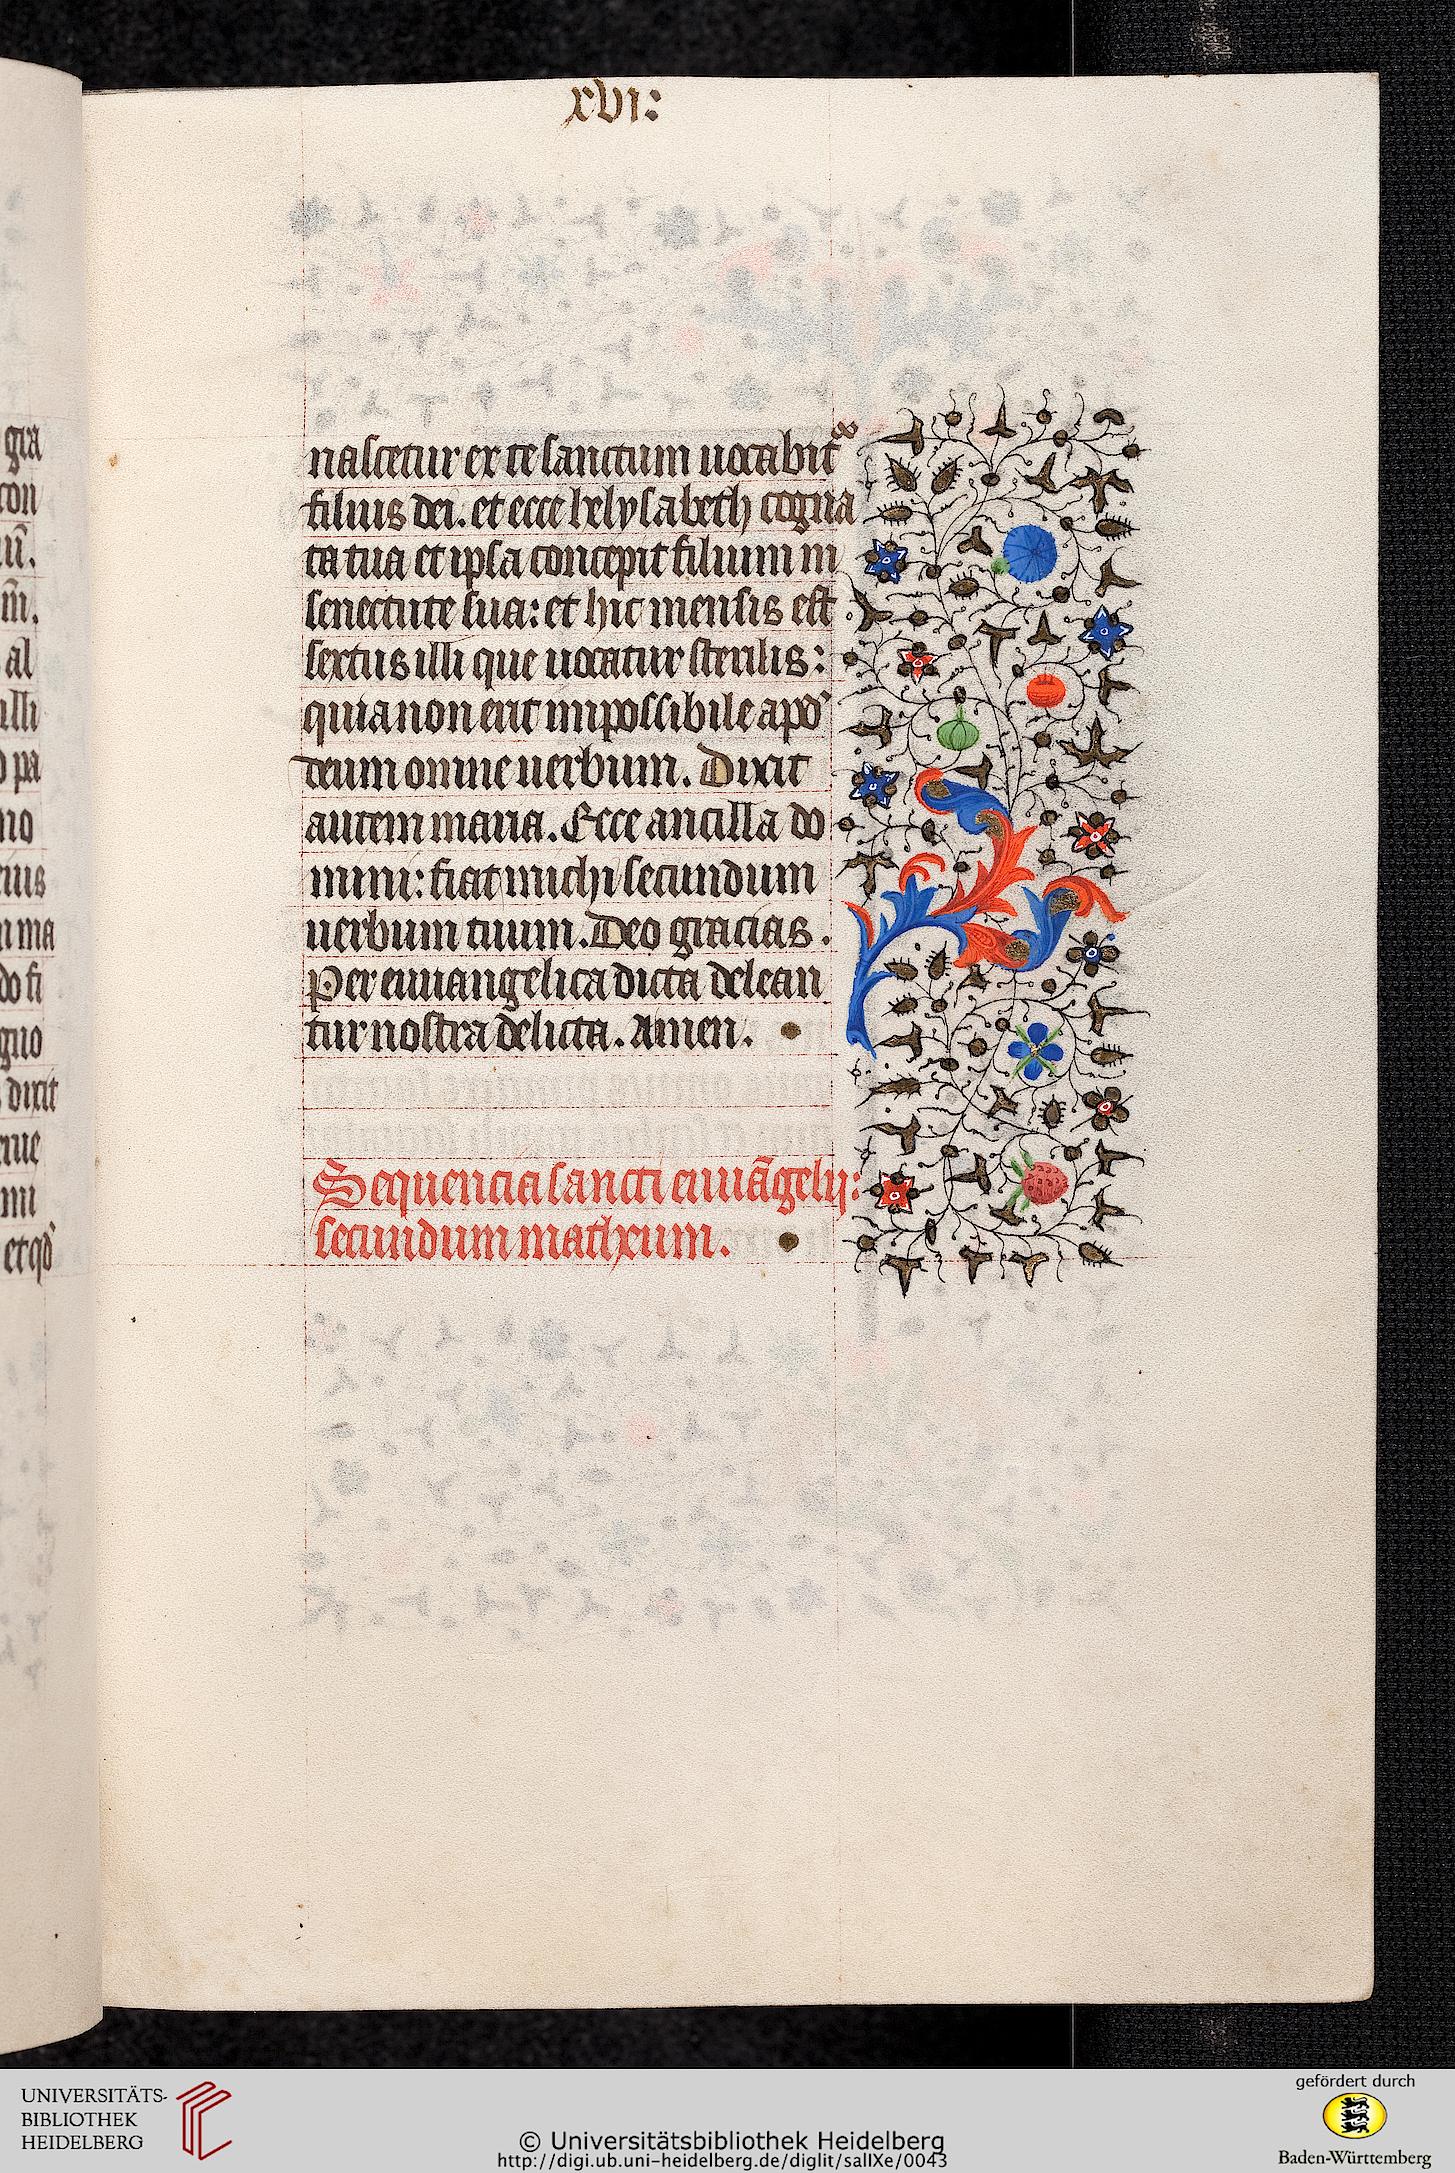 xvi:
gra
con
al
illi
pa
no
ma
do fi
gno
dixit
mi
et qd
nascetur ex te sanctum uocabit᷑
filius dei. et ecce helysabeth cogna
ta tua et ipsa concepit filium in
senectute sua: et hic mensis est
sextus illi que uocatur sterilis:
quia non erit impossibile apd'
deum omne uerbum. Dixit
autem maria. Ecce ancilla do
mini: fiat michi secundum
uerbum tuum. Deo gracias.
Per euuangelica dicta delean
tur nostra delicta. Amen.
Sequencia sancti euuãgelij:
secundum matheum.
UNIVERSITÄTS-
BIBLIOTHEK
HEIDELBERG
© Universitätsbibliothek Heidelberg
http://digi.ub.uni-heidelberg.de/diglit/salIXe/0043
gefördert durch
Baden-Württemberg